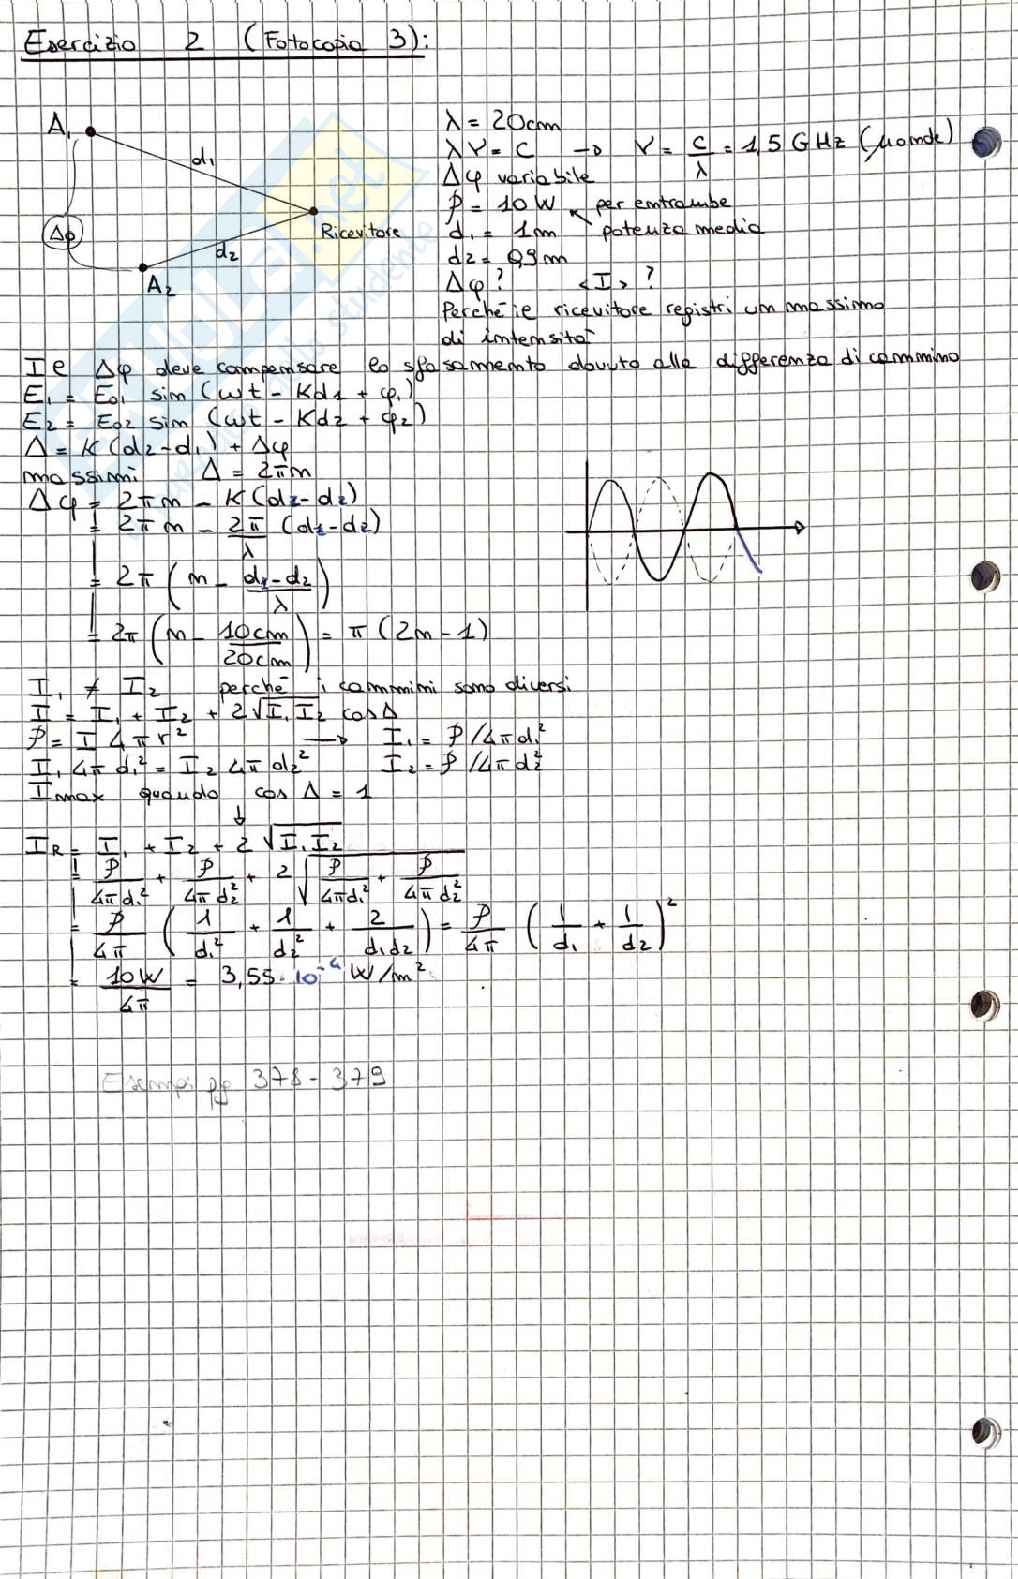 Esercizio 2 (Fotocopia 3):
A₁
d₁
Δφ
Ricevitore
d₂
A₂
λ = 20cm
λν = c → ν = c/λ = 1,5 GHz (μonde)
Δφ variabile
P = 10 W per entrambe
d₁ = 1m potenza media
d₂ = 0,9m
Δφ? <I>?
Perché il ricevitore registri un massimo
di intensità
Il Δφ deve compensare lo sfasamento dovuto alla differenza di cammino
E₁ = E₀₁ sin (ωt - Kd₁ + φ₁)
E₂ = E₀₂ sin (ωt - Kd₂ + φ₂)
Δ = K(d₂-d₁) + Δφ
massimi Δ = 2πn
Δφ = 2πn - K(d₂-d₂)
= 2πn - 2π/λ (d₁-d₂)
= 2π (n - (d₁-d₂)/λ)
= 2π (n - 10cm/20cm) = π (2n-1)
I₁ ≠ I₂ perché i cammini sono diversi
I = I₁ + I₂ + 2√(I₁I₂) cosΔ
P = I 4πr² → I₁ = P/4πd₁²
I₁ 4πd₁² = I₂ 4πd₂² I₂ = P/4πd₂²
Imax quando cos Δ = 1
↓
I_R = I₁ + I₂ + 2√(I₁I₂)
= P/4πd₁² + P/4πd₂² + 2√(P/4πd₁² · P/4πd₂²)
= P/4π (1/d₁² + 1/d₂² + 2/d₁d₂) = P/4π (1/d₁ + 1/d₂)²
= 10W/4π = 3,55·10⁻⁴ W/m²
Esempi pg 378-379